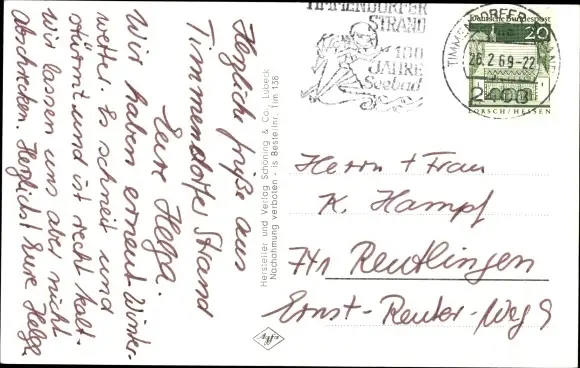 Herzliche Grüße aus
Timmendorfer Strand
Eure Helga.
Wir haben erneut Winter-
wetter. Es schneit und
stürmt und ist recht kalt -
wir lassen uns aber nicht
abschrecken. Herzlichst Eure Helga
Hersteller und Verlag Schöning & Co., Lübeck
Nachahmung verboten - Is Bestellnr. Tim 138
Agfa
TIMMENDORFER
STRAND
100
JAHRE
Seebad
TIMMENDORFER
26.2.69-22
2408
Deutsche Bundespost
20
LORSCH/HESSEN
Herrn + Frau
K. Hampf
741 Reutlingen
Ernst-Reuter-Weg 9